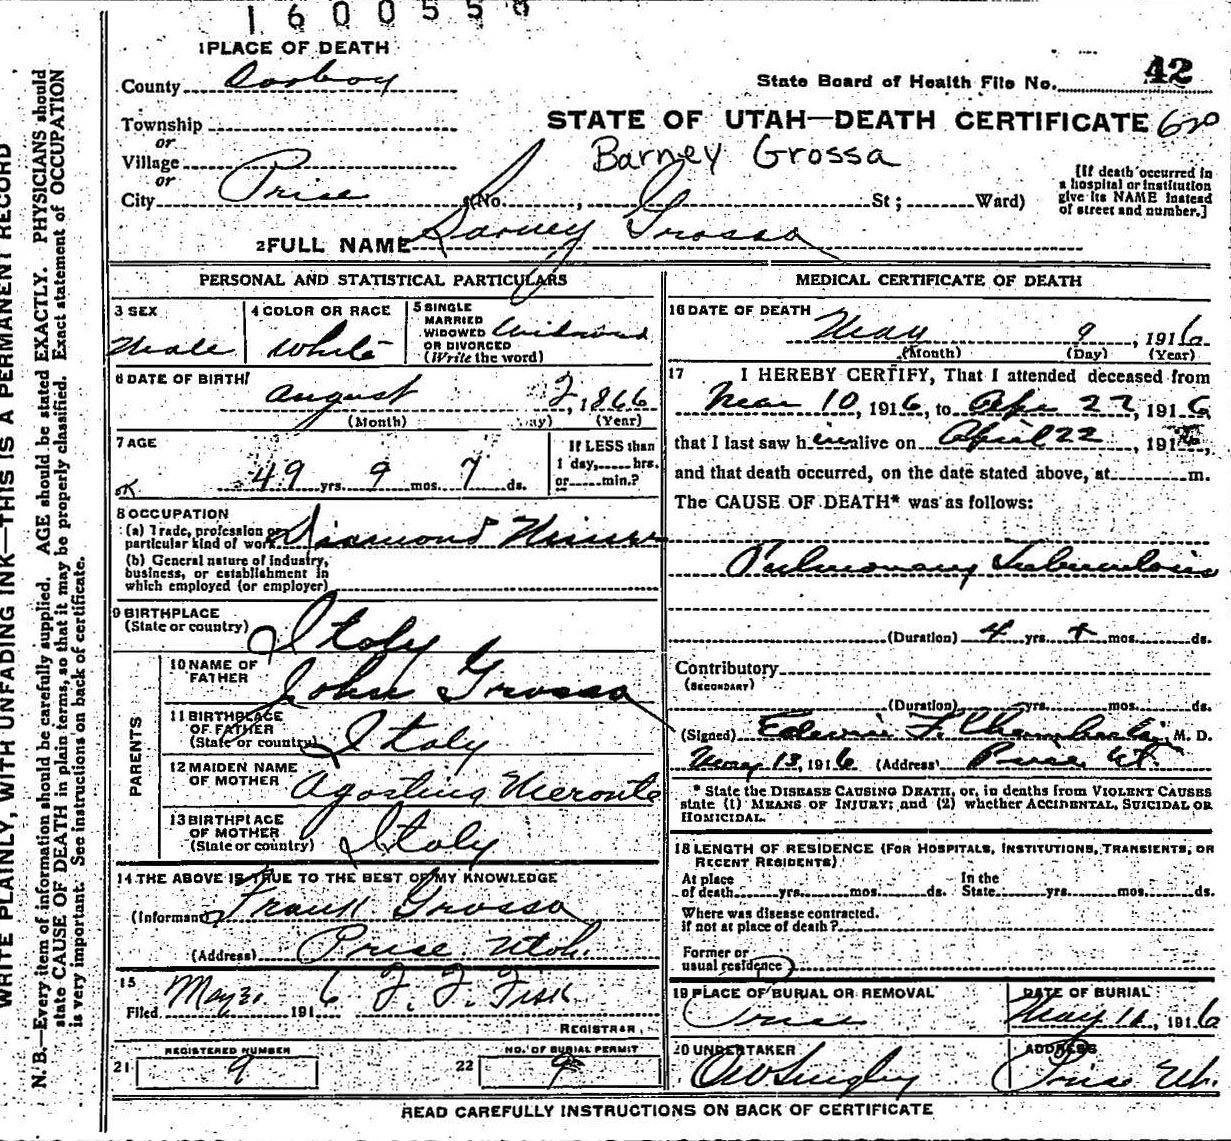 1600558
1 PLACE OF DEATH
County
State Board of Health File No. 42
Township
STATE OF UTAH—DEATH CERTIFICATE
or
Village
Barney Grossa
or
City Price (No. , St; Ward)
[If death occurred in
a hospital or institution
give its NAME instead
of street and number.]
2 FULL NAME Barney Grossa
PERSONAL AND STATISTICAL PARTICULARS
3 SEX Male
4 COLOR OR RACE White
5 SINGLE
MARRIED
WIDOWED
OR DIVORCED
(Write the word)
6 DATE OF BIRTH
August 2, 1866
(Month) (Day) (Year)
7 AGE
49 yrs. 9 mos. 7 ds.
If LESS than
1 day, hrs.
or min.?
8 OCCUPATION
(a) Trade, profession or
particular kind of work
(b) General nature of industry,
business, or establishment in
which employed (or employer)
9 BIRTHPLACE
(State or country) Italy
PARENTS
10 NAME OF
FATHER John Grosso
11 BIRTHPLACE
OF FATHER
(State or country) Italy
12 MAIDEN NAME
OF MOTHER Agostina
13 BIRTHPLACE
OF MOTHER
(State or country) Italy
14 THE ABOVE IS TRUE TO THE BEST OF MY KNOWLEDGE
(Informant) Frank Grosso
(Address) Price Utah.
15
Filed May 191 6 F. F. Fisk
REGISTRAR
21 REGISTERED NUMBER 9
22 NO. OF BURIAL PERMIT 9
MEDICAL CERTIFICATE OF DEATH
16 DATE OF DEATH
May 9, 1916
(Month) (Day) (Year)
17 I HEREBY CERTIFY, That I attended deceased from
10, 1916, to Apr 22, 1916
that I last saw h im alive on April 22, 191
and that death occurred, on the date stated above, at m.
The CAUSE OF DEATH* was as follows:
Pulmonary Tuberculosis
(Duration) 4 yrs. mos. ds.
Contributory
(SECONDARY)
(Duration) yrs. mos. ds.
(Signed) Edwin F. Chamberlain, M. D.
May 13, 1916 (Address) Price Ut.
* State the DISEASE CAUSING DEATH, or, in deaths from VIOLENT CAUSES
state (1) MEANS OF INJURY; and (2) whether ACCIDENTAL, SUICIDAL OR
HOMICIDAL.
18 LENGTH OF RESIDENCE (FOR HOSPITALS, INSTITUTIONS, TRANSIENTS, OR
RECENT RESIDENTS)
At place
of death yrs. mos. ds.
In the
State yrs. mos. ds.
Where was disease contracted.
if not at place of death?
Former or
usual residence
19 PLACE OF BURIAL OR REMOVAL
Price
DATE OF BURIAL
May 11, 1916
20 UNDERTAKER
ADDRESS
Price Ut.
READ CAREFULLY INSTRUCTIONS ON BACK OF CERTIFICATE
WRITE PLAINLY, WITH UNFADING INK—THIS IS A PERMANENT RECORD
N. B.—Every item of information should be carefully supplied. AGE should be stated EXACTLY. PHYSICIANS should
state CAUSE OF DEATH in plain terms, so that it may be properly classified. Exact statement of OCCUPATION
is very important. See instructions on back of certificate.